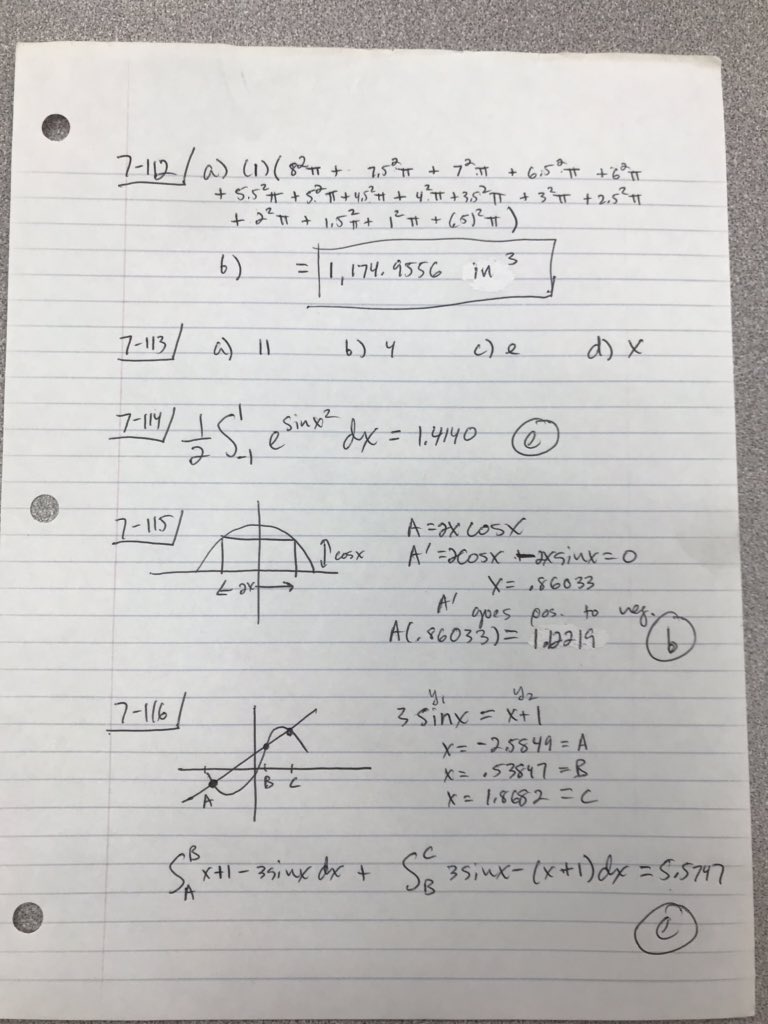 7-112 a) (1)(8²π + 7.5²π + 7²π + 6.5²π + 6²π
+ 5.5²π + 5²π + 4.5²π + 4²π + 3.5²π + 3²π + 2.5²π
+ 2²π + 1.5²π + 1²π + (.5)²π)
b) = 1,174.9556 in³
7-113 a) 11 b) 4 c) e d) x
7-114 1/2 ∫₋₁¹ e^(sinx²) dx = 1.4140 e
7-115 A = 2x cosx
cosx A' = 2cosx - 2xsinx = 0
2x x = .86033
A' goes pos. to neg.
A(.86033) = 1.12219 b
7-116 y₁ y₂
3 sinx = x+1
x = -2.5849 = A
A B C x = .53847 = B
x = 1.8682 = C
∫_A^B x+1-3sinx dx + ∫_B^C 3sinx-(x+1)dx = 5.5747